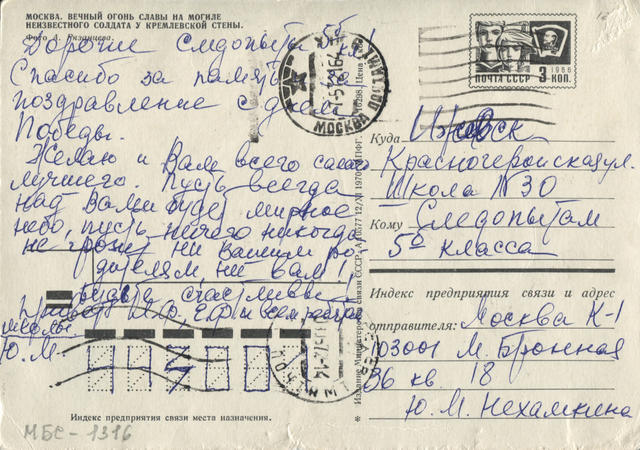 МОСКВА. ВЕЧНЫЙ ОГОНЬ СЛАВЫ НА МОГИЛЕ
НЕИЗВЕСТНОГО СОЛДАТА У КРЕМЛЕВСКОЙ СТЕНЫ.
Фото А. Рязанцева.
Дорогие следопыты 5б кл!
Спасибо за память, за
поздравление с днем
Победы.
Желаю и Вам всего самого
лучшего. Пусть всегда
над Вами будет мирное
небо, пусть ничего никогда
не грозит ни вашим ро-
дителям, ни вам!
Будьте счастливы!
Привет М.Ф., Е.Ф. и всем
школы
Ю. М.
Индекс предприятия связи места назначения.
МБС-1316
МОСКВА ПОЧТАМТ
Издание Министерства связи СССР
1966
ПОЧТА СССР 3 КОП.
Куда Ижевск
Красногеройская ул.
Школа N 30
Кому Следопытам
5б класса
Индекс предприятия связи и адрес
отправителя: Москва К-1
103001 М. Бронная
36 кв. 18
Ю. М. Нехамкина